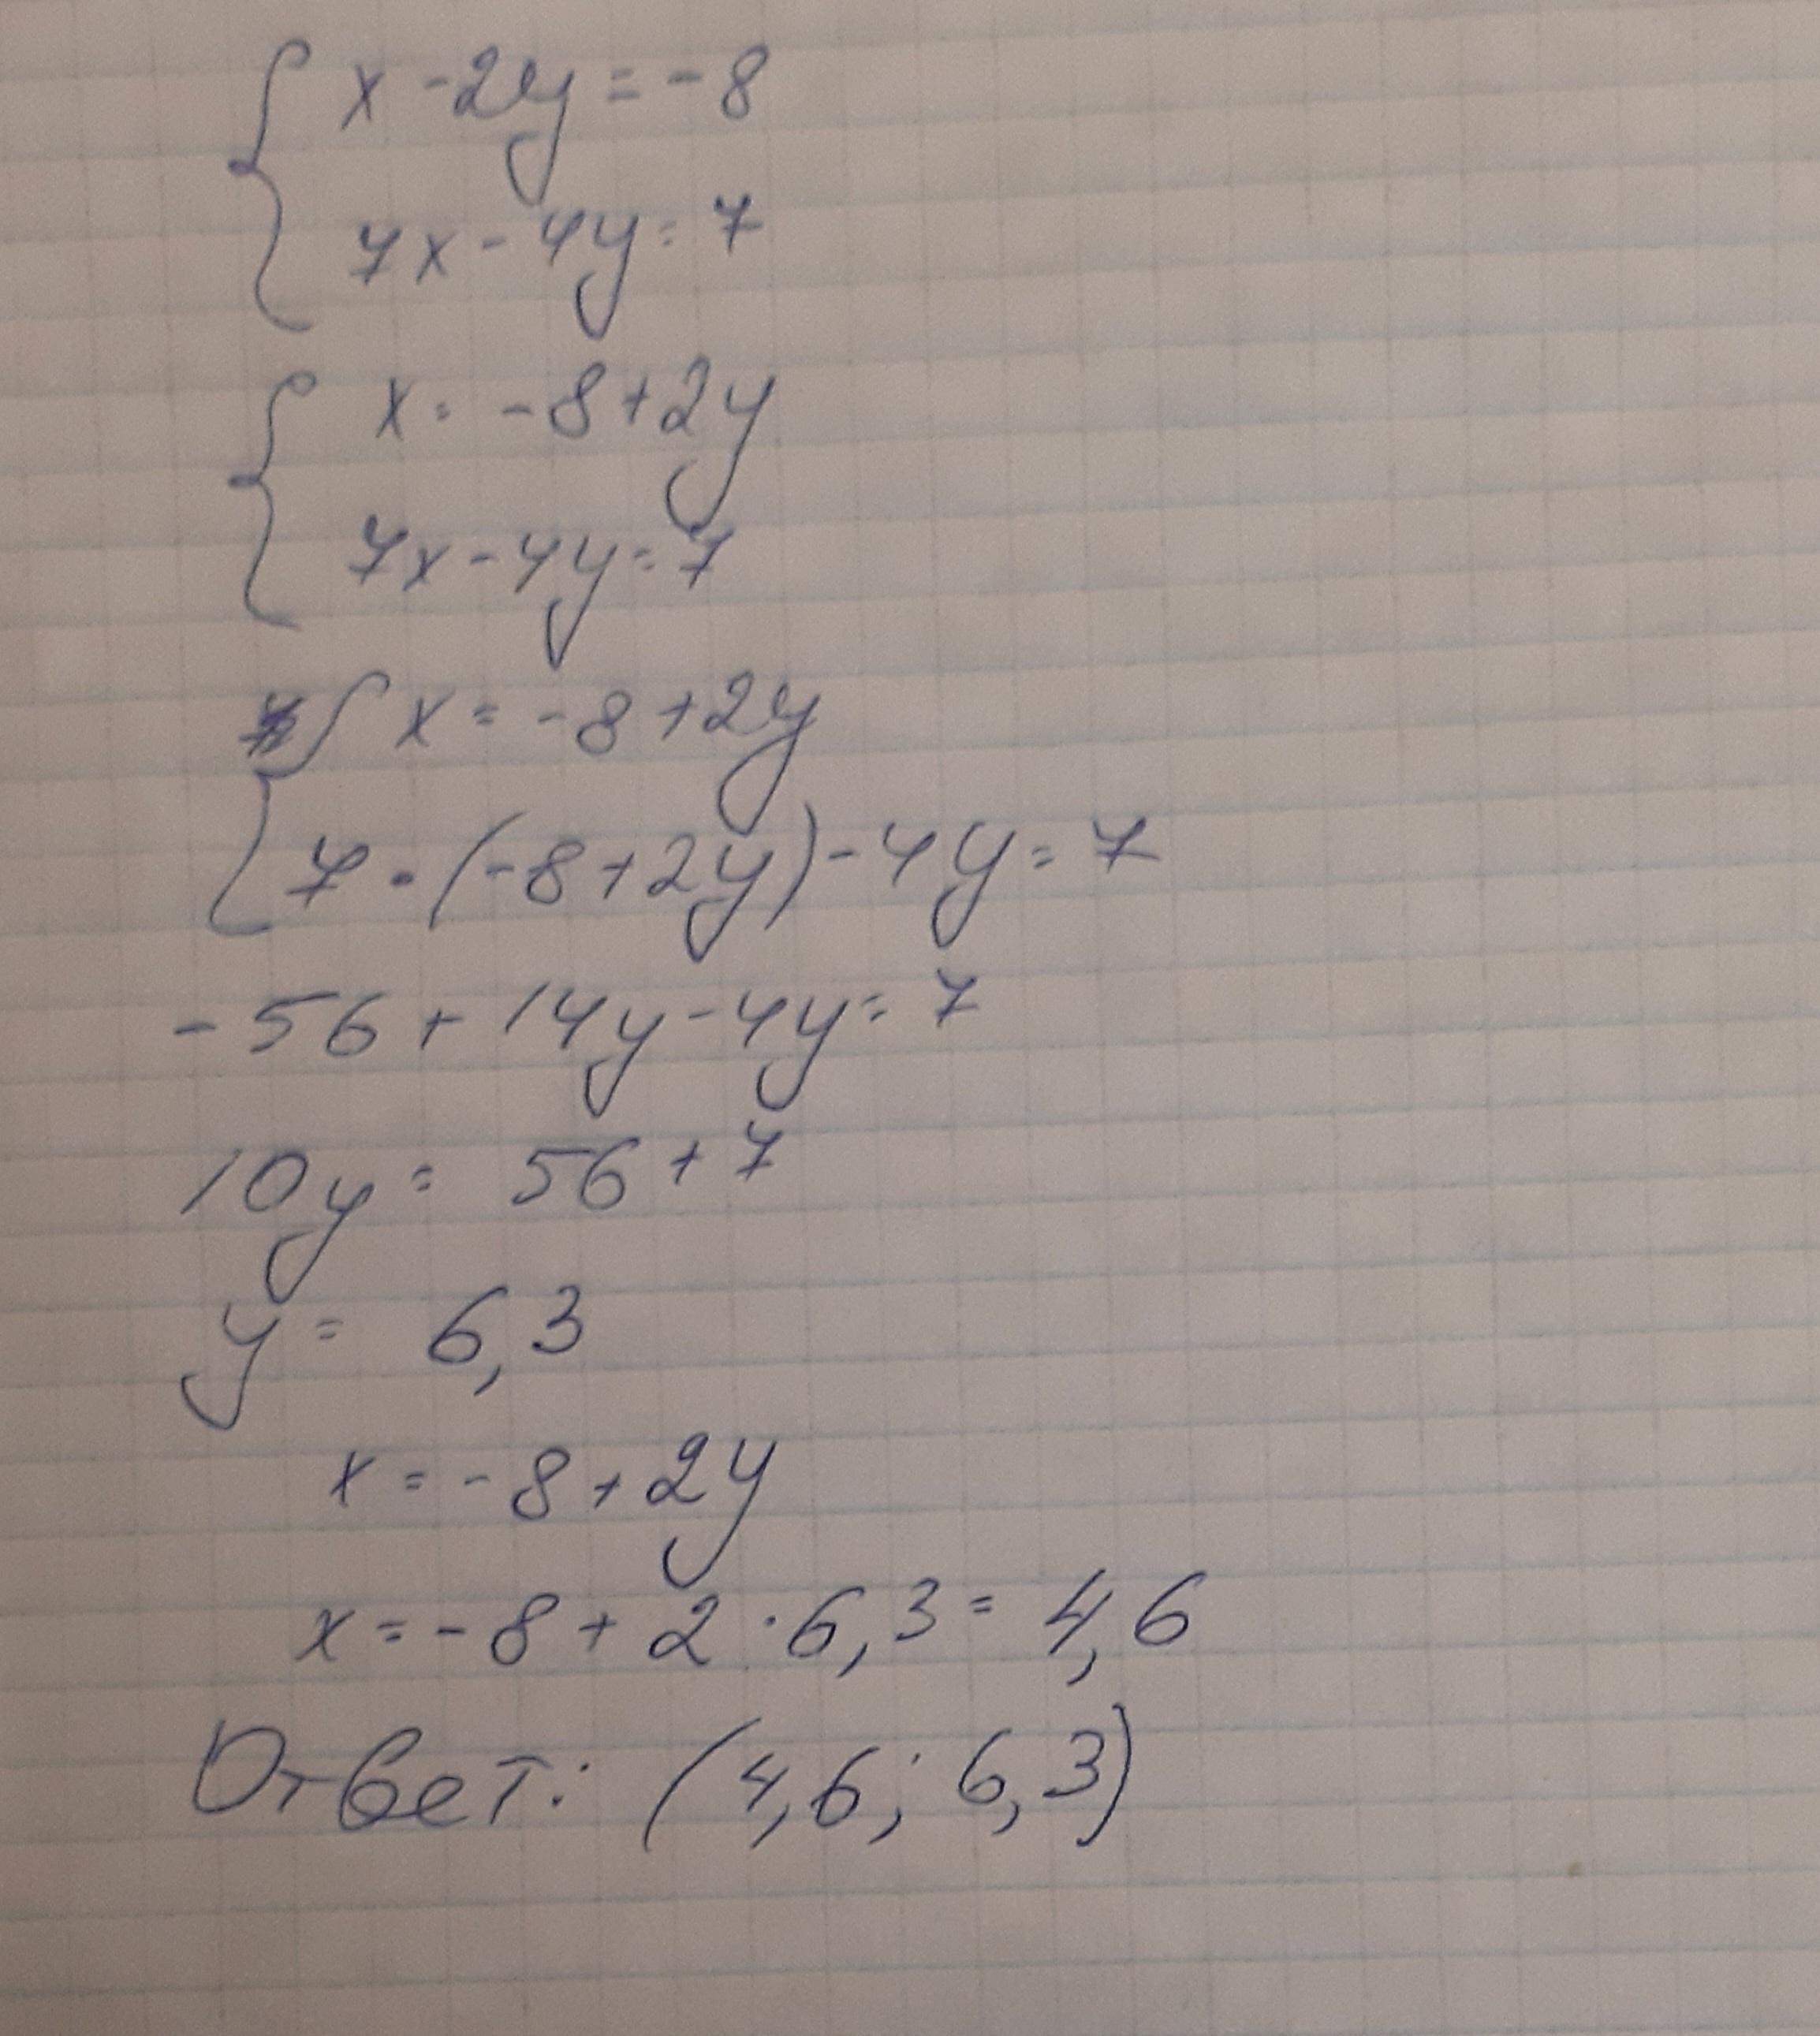 x - 2y = -8
7x - 4y = 7
x = -8 + 2y
7x - 4y = 7
x = -8 + 2y
7 · (-8 + 2y) - 4y = 7
-56 + 14y - 4y = 7
10y = 56 + 7
y = 6,3
x = -8 + 2y
x = -8 + 2 · 6,3 = 4,6
Ответ: (4,6; 6,3)